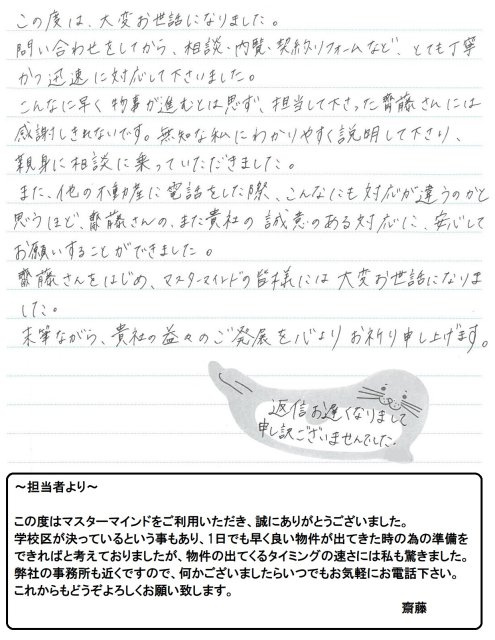 この度は、大変お世話になりました。
問い合わせをしてから、相談・内覧・契約・リフォームなど、とても丁寧
かつ迅速に対応して下さいました。
こんなに早く物事が進むとは思ず、担当して下さった齋藤さんには
感謝しきれないです。無知な私にわかりやすく説明して下さり、
親身に相談に乗っていただきました。
また、他の不動産に電話をした際、こんなにも対応が違うのかと
思うほど、齋藤さんの、また貴社の誠意のある対応に、安心して
お願いすることができました。
齋藤さんをはじめ、マスターマインドの皆様には大変お世話になりま
した。
末筆ながら、貴社の益々のご発展を心よりお祈り申し上げます。
返信お遅くなりまして
申し訳ございませんでした。
～担当者より～
この度はマスターマインドをご利用いただき、誠にありがとうございました。
学校区が決っているという事もあり、1日でも早く良い物件が出てきた時の為の準備を
できればと考えておりましたが、物件の出てくるタイミングの速さには私も驚きました。
弊社の事務所も近くですので、何かございましたらいつでもお気軽にお電話下さい。
これからもどうぞよろしくお願い致します。
齋藤